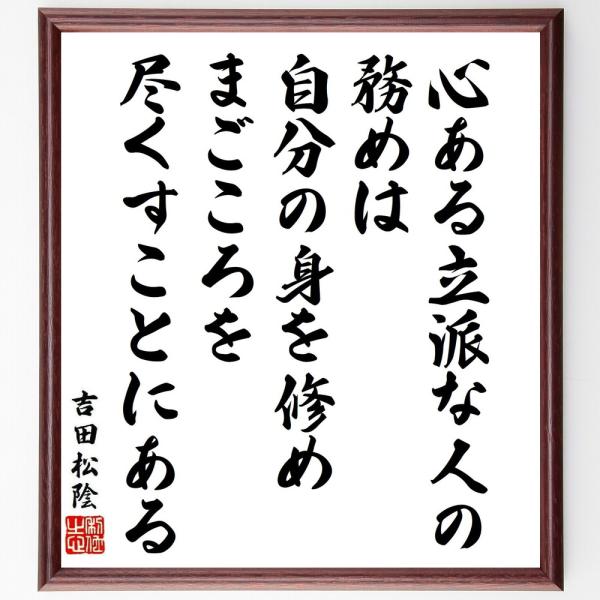 心ある立派な人の
務めは
自分の身を修め
まごころを
尽くすことにある
吉田松陰